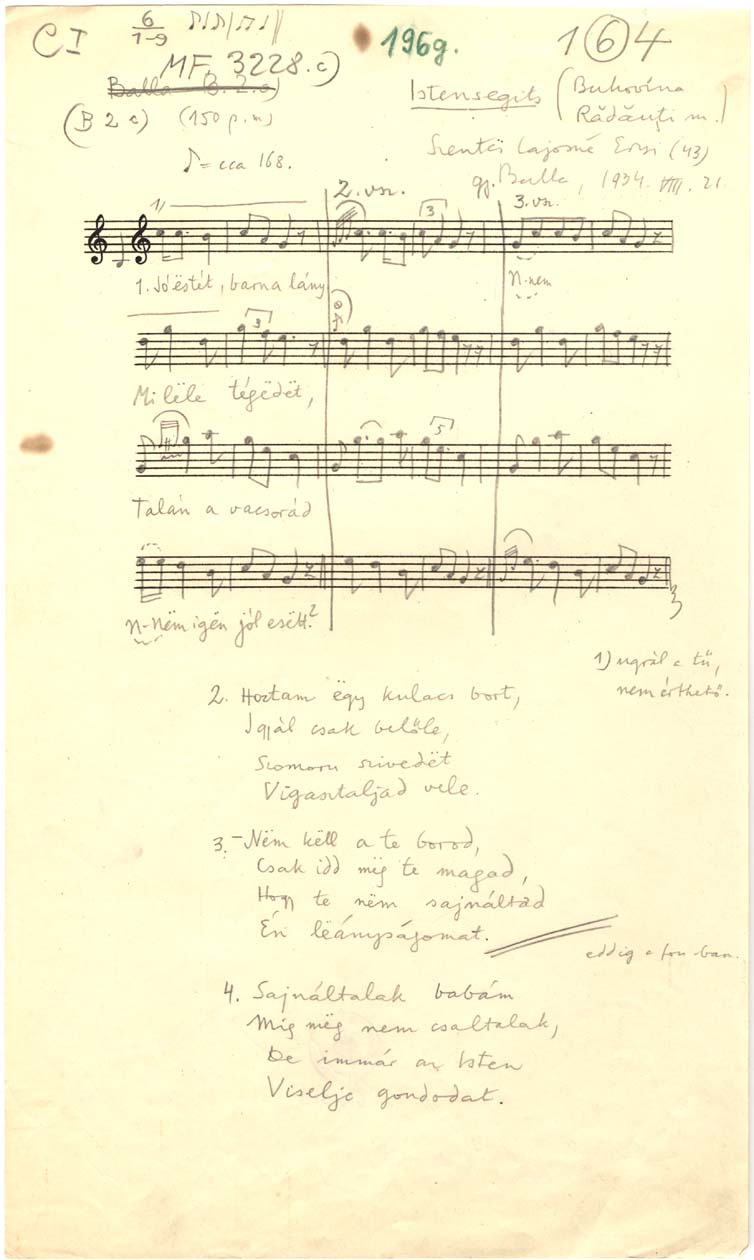 C I 6/1-9 1969. 1 6 4
MF 3228.c)
Balla B. 2.c)
(B 2 c) (150 p.m)
Istensegits (Bukovina
Rădăuți m.)
Szentes Lajosné Erzsi (43)
gy. Balla, 1934. VIII. 21.
♪ = cca 168.
1) 2. vsz. 3 3. vsz.
1. Jó ëstét, barna lány N-nem
3
Mi lële tégëdët,
5
Talán a vacsorád
N-Nëm igén jól esëtt?
1) ugrál a tű,
nem érthető.
2. Hoztam ëgy kulacs bort,
Igyál csak belőle,
Szomoru szivedët
Vigasztaljad vele.
3. -Nëm këll a te borod,
Csak idd mëg te magad,
Hogy te nëm sajnáltad
Én lëányságomat.
eddig a fon-ban.
4. Sajnáltalak babám
Mig mëg nem csaltalak,
De immár az Isten
Viselje gondodat.